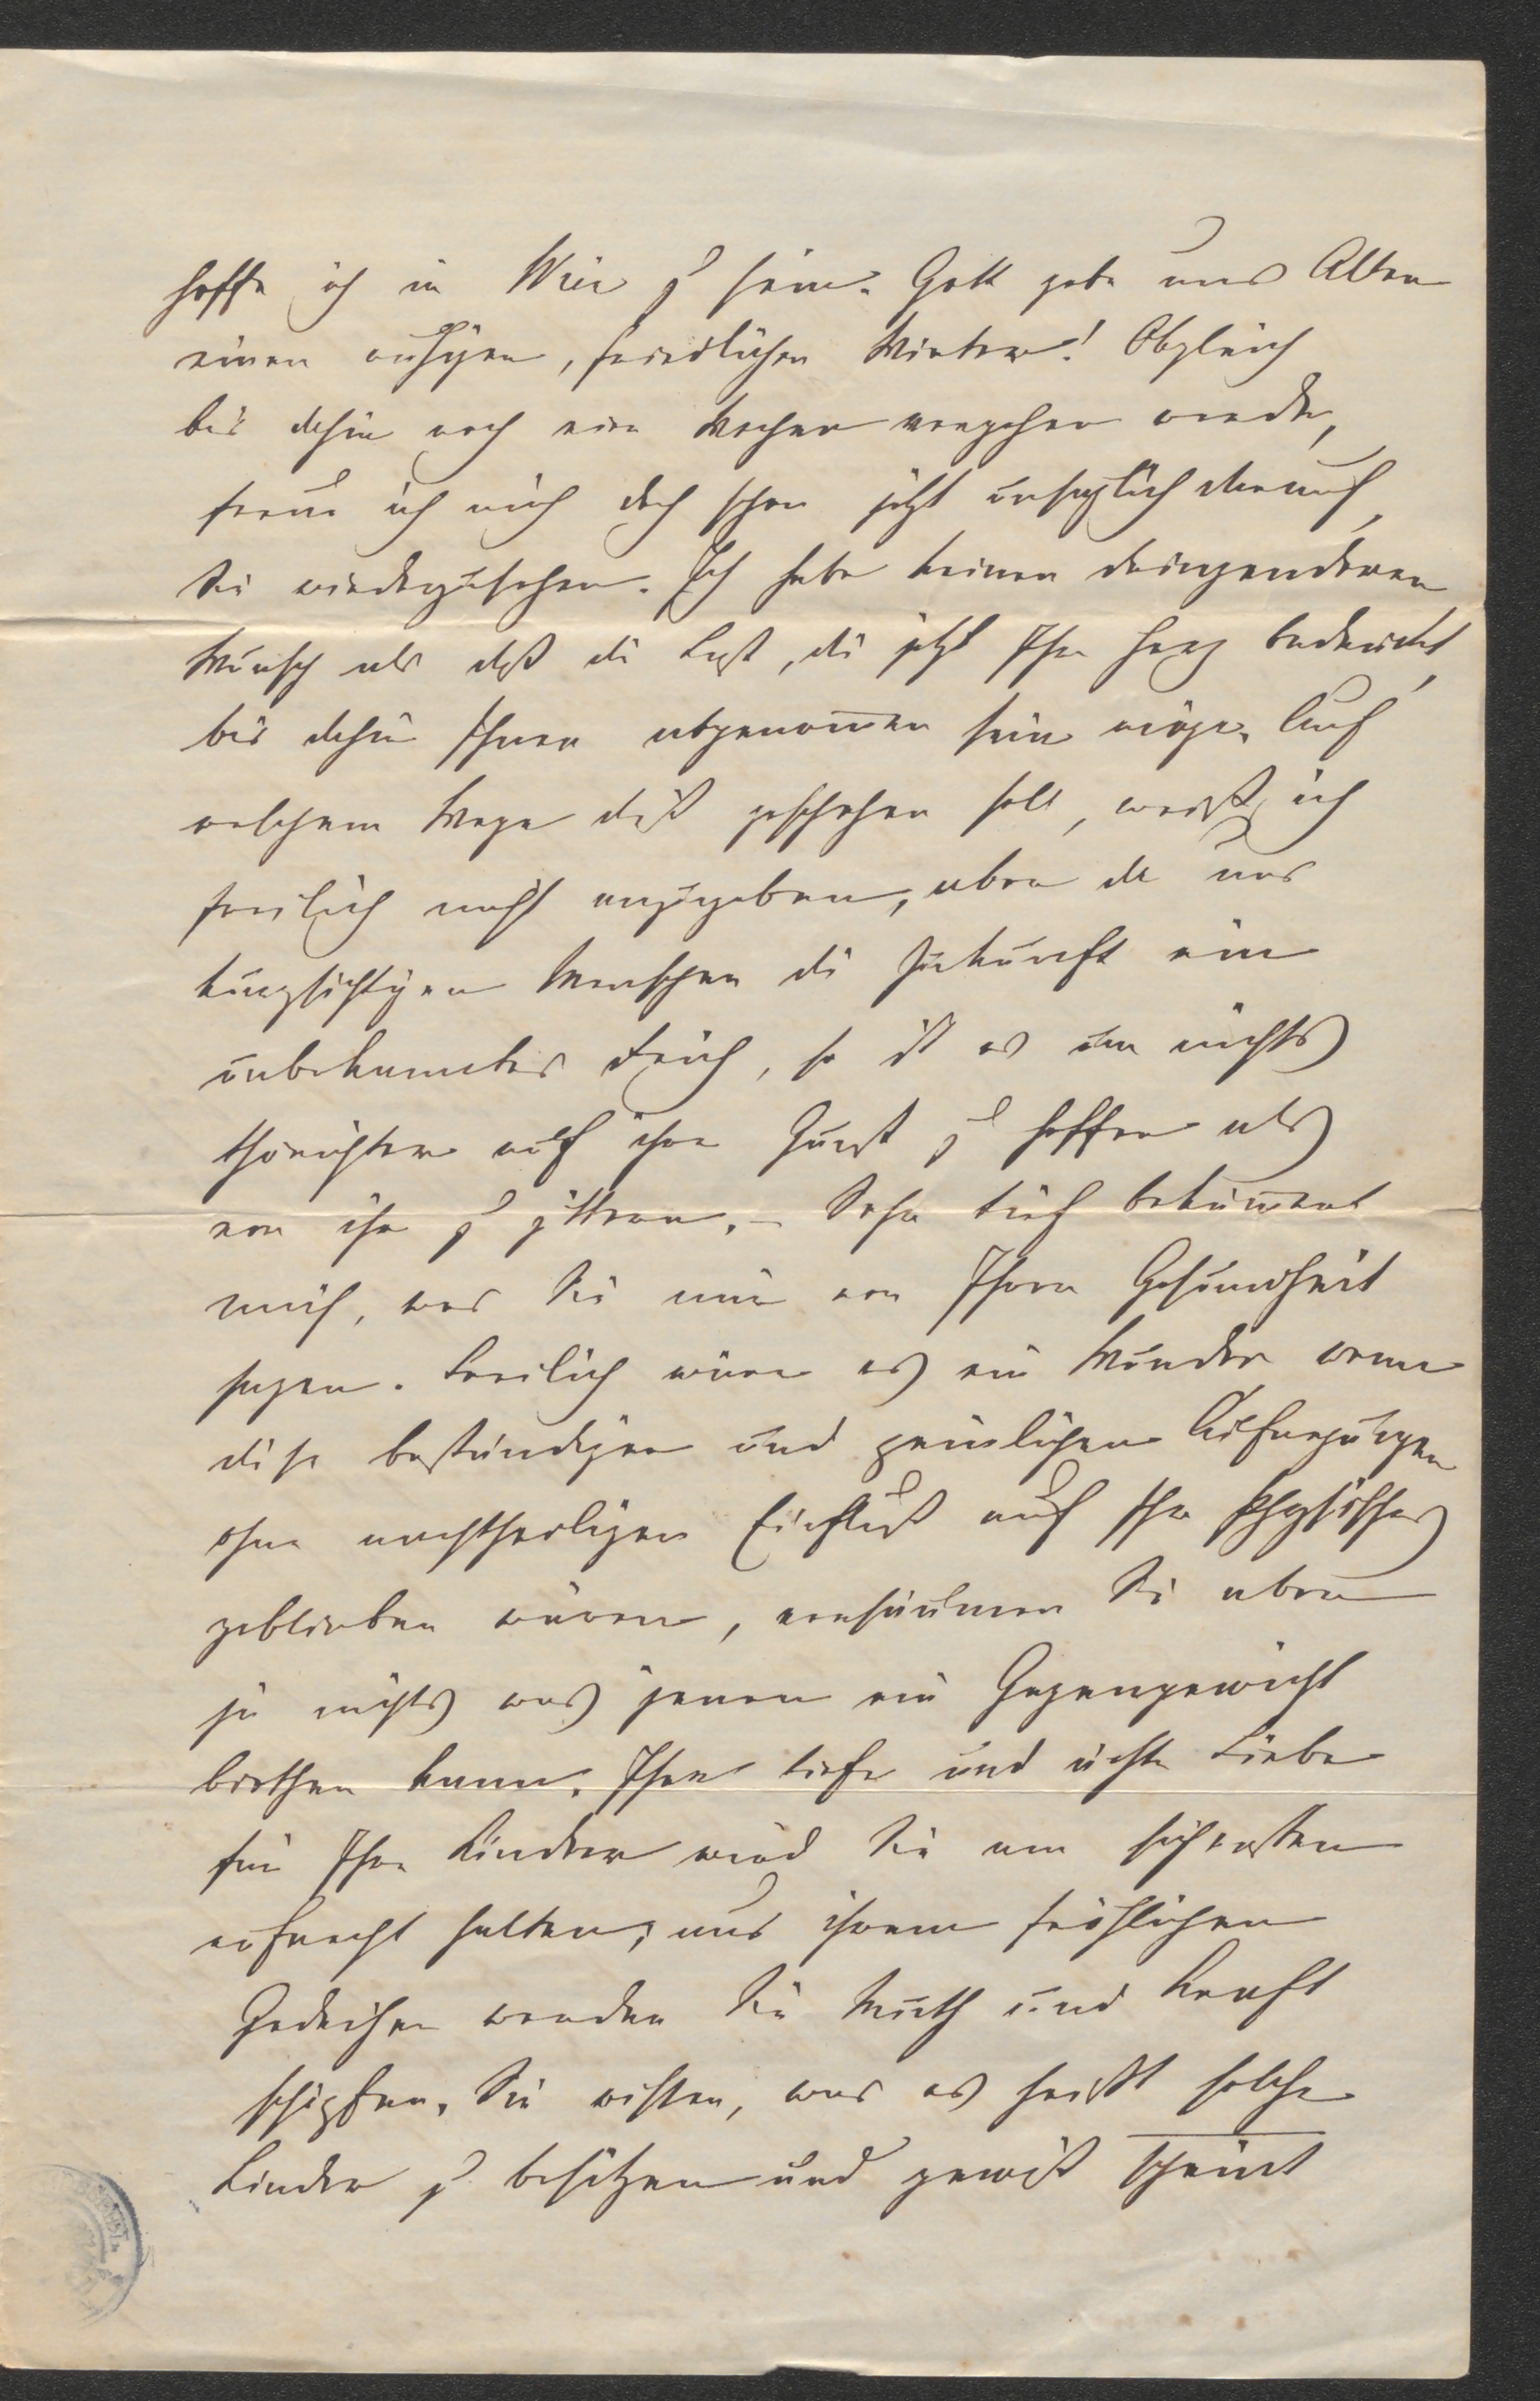 hoffe ich in Wien zu sein. Gott gebe uns Allen
einen ruhigen, friedlichen Winter! Obgleich
bis dahin noch vier Wochen vergehen werden,
freue ich mich doch schon jetzt unsäglich darauf,
Sie wiederzusehen. Ich habe keinen dringenderen
Wunsch als daß die Last, die jetzt Ihr Herz bedrückt,
bis dahin Ihnen abgenom̅en sein möge. Auf
welchem Wege dieß geschehen soll, weiß ich
freilich nicht anzugeben, aber da uns
kurzsichtigen Menschen die Zukunft ein
unbekanntes Reich, so ist es um nichts
thörichter auf ihre Gunst zu hoffen als
vor ihr zu zittern. – Sehr tief beküm̅ert
mich, was Sie mir von Ihrer Gesundheit
sagen. Freilich wäre es ein Wunder wenn
diese beständigen und peinlichen Aufregungen
ohne nachtheiligen Einfluß auf Ihr Physisches
geblieben wären, versäumen Sie aber
ja nichts was jenen ein Gegengewicht
biethen kann. Ihre tiefe und ächte Liebe
für Ihre Kinder wird Sie am sichersten
aufrecht halten; aus ihrem fröhlichen
Gedeihen werden Sie Muth und Kraft
schöpfen. Sie wissen, was es heißt solche
Kinder zu besitzen und gewiß scheint